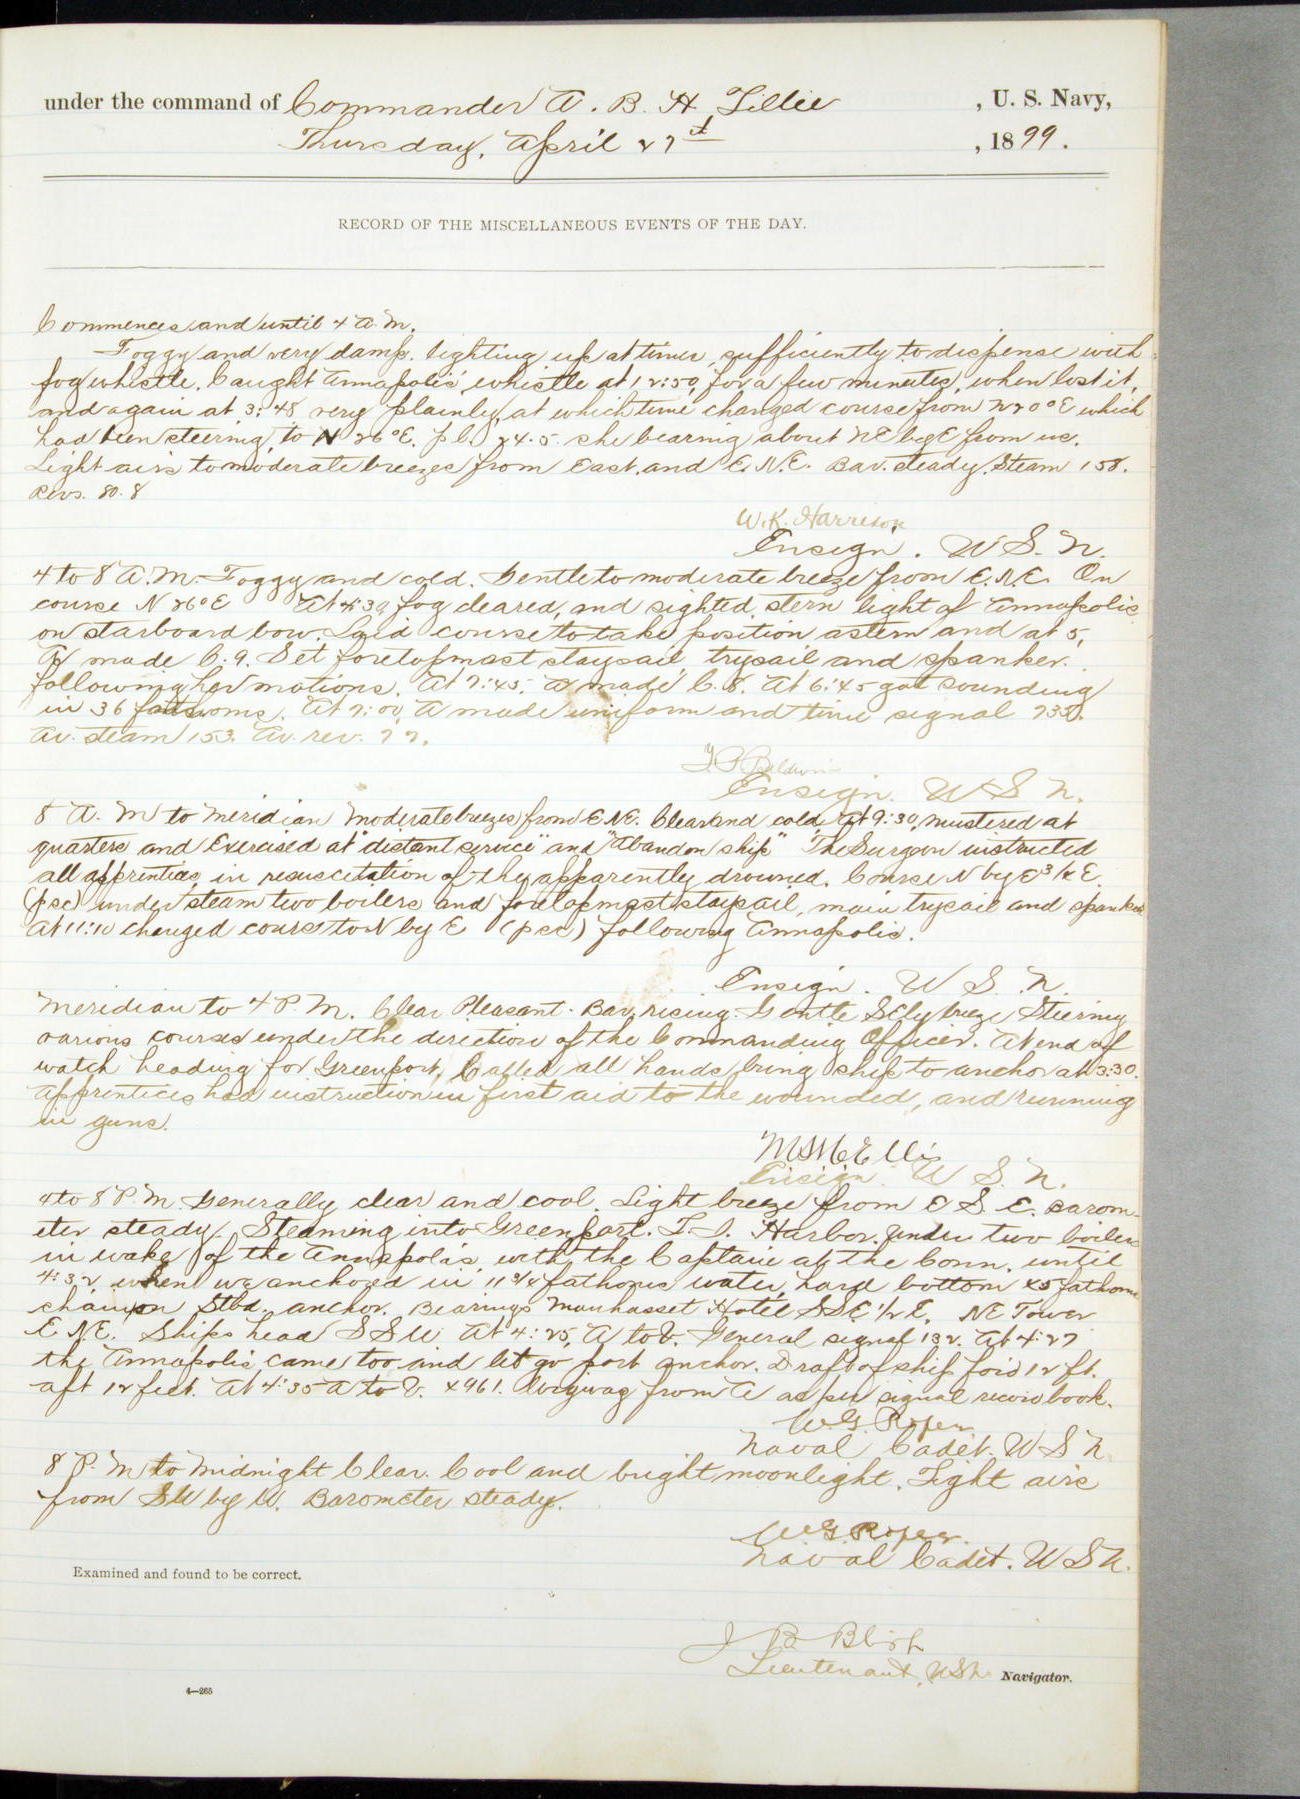 under the command of Commander A. B. H. Lillie , U. S. Navy,
Thursday, April 27th , 1899.
RECORD OF THE MISCELLANEOUS EVENTS OF THE DAY.
Commences and until 4 A.M.
Foggy and very damp, lighting up at times, sufficiently to dispense with
fog whistle. Caught Annapolis' whistle at 12:50, for a few minutes, when lost it,
and again at 3:48 very plainly, at which time changed course from N 20° E which
had been steering, to N 26° E. p.l. 24.5 she bearing about NE by E from us.
Light airs to moderate breezes from East, and E.N.E. Bar. steady. Steam 158.
Revs. 80.8
W.K. Harrison
Ensign. U S. N.
4 to 8 A.M. Foggy and cold. Gentle to moderate breeze from E.N.E. On
course N 26° E At 4:39 fog cleared, and sighted stern light of Annapolis
on starboard bow. Laid course to take position astern and at 5,
A made C. 9. Set foretopmast staysail, trysail and spanker.
following her motions. At 7:45, A made C. 8. At 6:45 got sounding
in 36 fathoms. At 7:00, A made uniform and time signal 735.
Av. steam 153. Av. rev. 77.
Baldwin
Ensign. U S N.
8 A. M to Meridian Moderate breezes from E.NE. Clear and cold. At 9:30, mustered at
quarters and Exercised at "distant service" and "Abandon ship" The Surgeon instructed
all apprentices in resuscitation of the apparently drowned. Course N by E 3/4 E
(psc) under steam two boilers and foretopmast staysail, main trysail and spanker
At 11:10 changed course to N by E (psc) following Annapolis.
Ensign. U S. N.
Meridian to 4 P. M. Clear Pleasant. Bar. rising. Gentle SEly breeze Steering
various courses under the direction of the Commanding Officer. At end of
watch heading for Greenport, Called all hands bring ship to anchor at 3:30.
Apprentices had instruction in first aid to the wounded, and running
in guns.
Ellis
Ensign U S. N.
4 to 8 P.M. Generally clear and cool. Light breeze from E S. E. Barom-
eter steady. Steaming into Greenport. L.I. Harbor. under two boilers
in wake of the Annapolis, with the Captain at the Conn, until
4:32 when we anchored in 11 3/4 fathoms water, hard bottom 45 fathoms
chain on Stbd. anchor. Bearings Manhasset Hotel SSE 1/2 E. NE Tower
E NE. Ships head S S W At 4:25, A to V. General signal 132. At 4:27
the Annapolis came too and let go port anchor. Draft of ship for'd 12 ft.
aft 12 feet. At 4:35 A to V. 4961. Wigwag from A as per signal record book.
W.G. Roper
Naval Cadet. U S N
8 P. M to Midnight Clear. Cool and bright moonlight. Light airs
from SW by W. Barometer steady.
W.G. Roper
Naval Cadet. U S N.
Examined and found to be correct.
J B Blish
Lieutenant, USN Navigator.
4—265